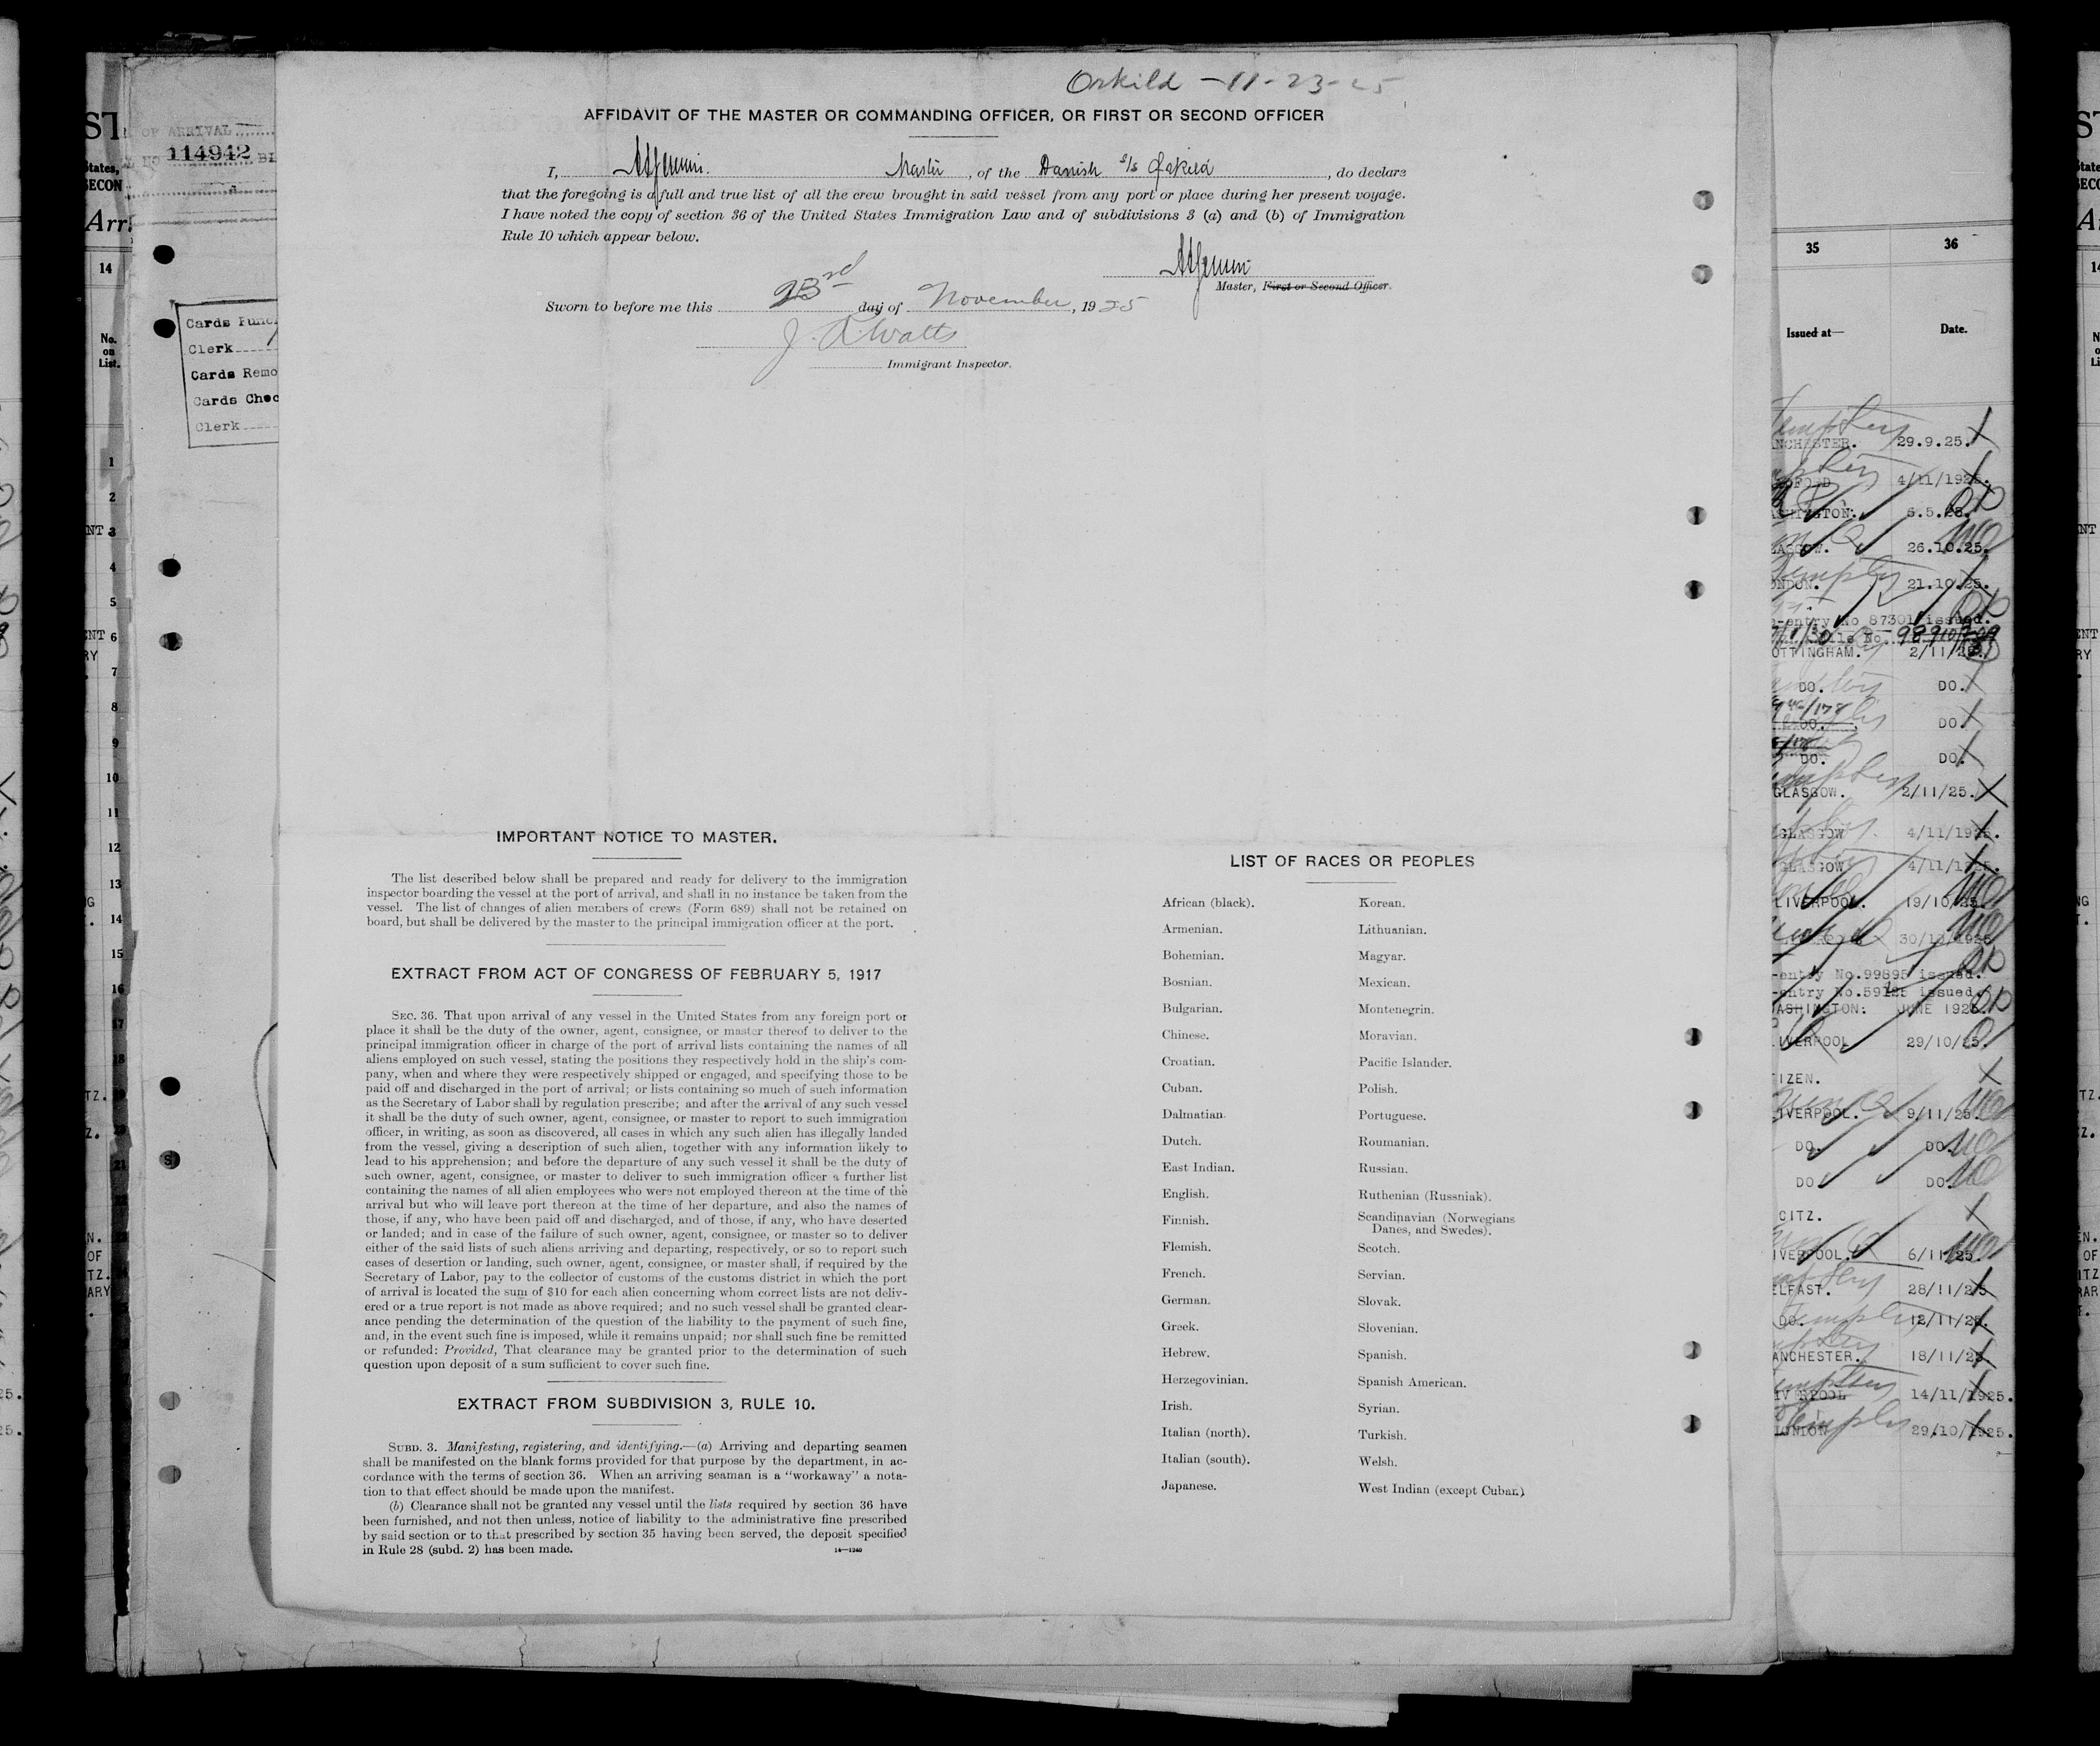 Orkild - 11-23-25
AFFIDAVIT OF THE MASTER OR COMMANDING OFFICER, OR FIRST OR SECOND OFFICER
I, Master, of the Danish s/s Ørkild, do declare
that the foregoing is a full and true list of all the crew brought in said vessel from any port or place during her present voyage.
I have noted the copy of section 36 of the United States Immigration Law and of subdivisions 3 (a) and (b) of Immigration
Rule 10 which appear below.
Master, First or Second Officer.
Sworn to before me this 23rd day of November, 1925
J. R. Watts
Immigrant Inspector.
IMPORTANT NOTICE TO MASTER.
The list described below shall be prepared and ready for delivery to the immigration
inspector boarding the vessel at the port of arrival, and shall in no instance be taken from the
vessel. The list of changes of alien members of crews (Form 689) shall not be retained on
board, but shall be delivered by the master to the principal immigration officer at the port.
EXTRACT FROM ACT OF CONGRESS OF FEBRUARY 5, 1917
SEC. 36. That upon arrival of any vessel in the United States from any foreign port or
place it shall be the duty of the owner, agent, consignee, or master thereof to deliver to the
principal immigration officer in charge of the port of arrival lists containing the names of all
aliens employed on such vessel, stating the positions they respectively hold in the ship's com-
pany, when and where they were respectively shipped or engaged, and specifying those to be
paid off and discharged in the port of arrival; or lists containing so much of such information
as the Secretary of Labor shall by regulation prescribe; and after the arrival of any such vessel
it shall be the duty of such owner, agent, consignee, or master to report to such immigration
officer, in writing, as soon as discovered, all cases in which any such alien has illegally landed
from the vessel, giving a description of such alien, together with any information likely to
lead to his apprehension; and before the departure of any such vessel it shall be the duty of
such owner, agent, consignee, or master to deliver to such immigration officer a further list
containing the names of all alien employees who were not employed thereon at the time of the
arrival but who will leave port thereon at the time of her departure, and also the names of
those, if any, who have been paid off and discharged, and of those, if any, who have deserted
or landed; and in case of the failure of such owner, agent, consignee, or master so to deliver
either of the said lists of such aliens arriving and departing, respectively, or so to report such
cases of desertion or landing, such owner, agent, consignee, or master shall, if required by the
Secretary of Labor, pay to the collector of customs of the customs district in which the port
of arrival is located the sum of $10 for each alien concerning whom correct lists are not deliv-
ered or a true report is not made as above required; and no such vessel shall be granted clear-
ance pending the determination of the question of the liability to the payment of such fine,
and, in the event such fine is imposed, while it remains unpaid; nor shall such fine be remitted
or refunded: Provided, That clearance may be granted prior to the determination of such
question upon deposit of a sum sufficient to cover such fine.
EXTRACT FROM SUBDIVISION 3, RULE 10.
SUBD. 3. Manifesting, registering, and identifying.—(a) Arriving and departing seamen
shall be manifested on the blank forms provided for that purpose by the department, in ac-
cordance with the terms of section 36. When an arriving seaman is a "workaway" a nota-
tion to that effect should be made upon the manifest.
(b) Clearance shall not be granted any vessel until the lists required by section 36 have
been furnished, and not then unless, notice of liability to the administrative fine prescribed
by said section or to that prescribed by section 35 having been served, the deposit specified
in Rule 28 (subd. 2) has been made.
14—1240
LIST OF RACES OR PEOPLES
African (black).
Armenian.
Bohemian.
Bosnian.
Bulgarian.
Chinese.
Croatian.
Cuban.
Dalmatian.
Dutch.
East Indian.
English.
Finnish.
Flemish.
French.
German.
Greek.
Hebrew.
Herzegovinian.
Irish.
Italian (north).
Italian (south).
Japanese.
Korean.
Lithuanian.
Magyar.
Mexican.
Montenegrin.
Moravian.
Pacific Islander.
Polish.
Portuguese.
Roumanian.
Russian.
Ruthenian (Russniak).
Scandinavian (Norwegians
Danes, and Swedes).
Scotch.
Servian.
Slovak.
Slovenian.
Spanish.
Spanish American.
Syrian.
Turkish.
Welsh.
West Indian (except Cuban)
OF ARRIVAL
114942
Cards Punc
Clerk
Cards Remo
Cards Chec
Clerk
14
No.
on
List.
1
2
3
4
5
6
7
8
9
10
11
12
13
14
15
16
17
18
19
20
21
35
36
Issued at—
Date.
NCHESTER. 29.9.25.
4/11/1925.
ASHINGTON.
26.10.25.
21.10.25.
-entry No 87301 issued.
OTTINGHAM. 2/11/25.
DO. DO.
DO. DO.
DO. DO.
GLASGOW. 2/11/25.
GLASGOW 4/11/1925.
GLASGOW 4/11/1925.
LIVERPOOL. 19/10/25.
-entry No.99895 issued.
-entry No.59125 issued.
ASHINGTON: JUNE 1925.
IVERPOOL 29/10/25.
IZEN.
IVERPOOL. 9/11/25.
DO. DO.
DO DO.
CITZ.
IVERPOOL. 6/11/25.
ELFAST. 28/11/25
DO. 12/11/25.
ANCHESTER. 18/11/25
IVERPOOL 14/11/1925.
LONDON 29/10/1925.